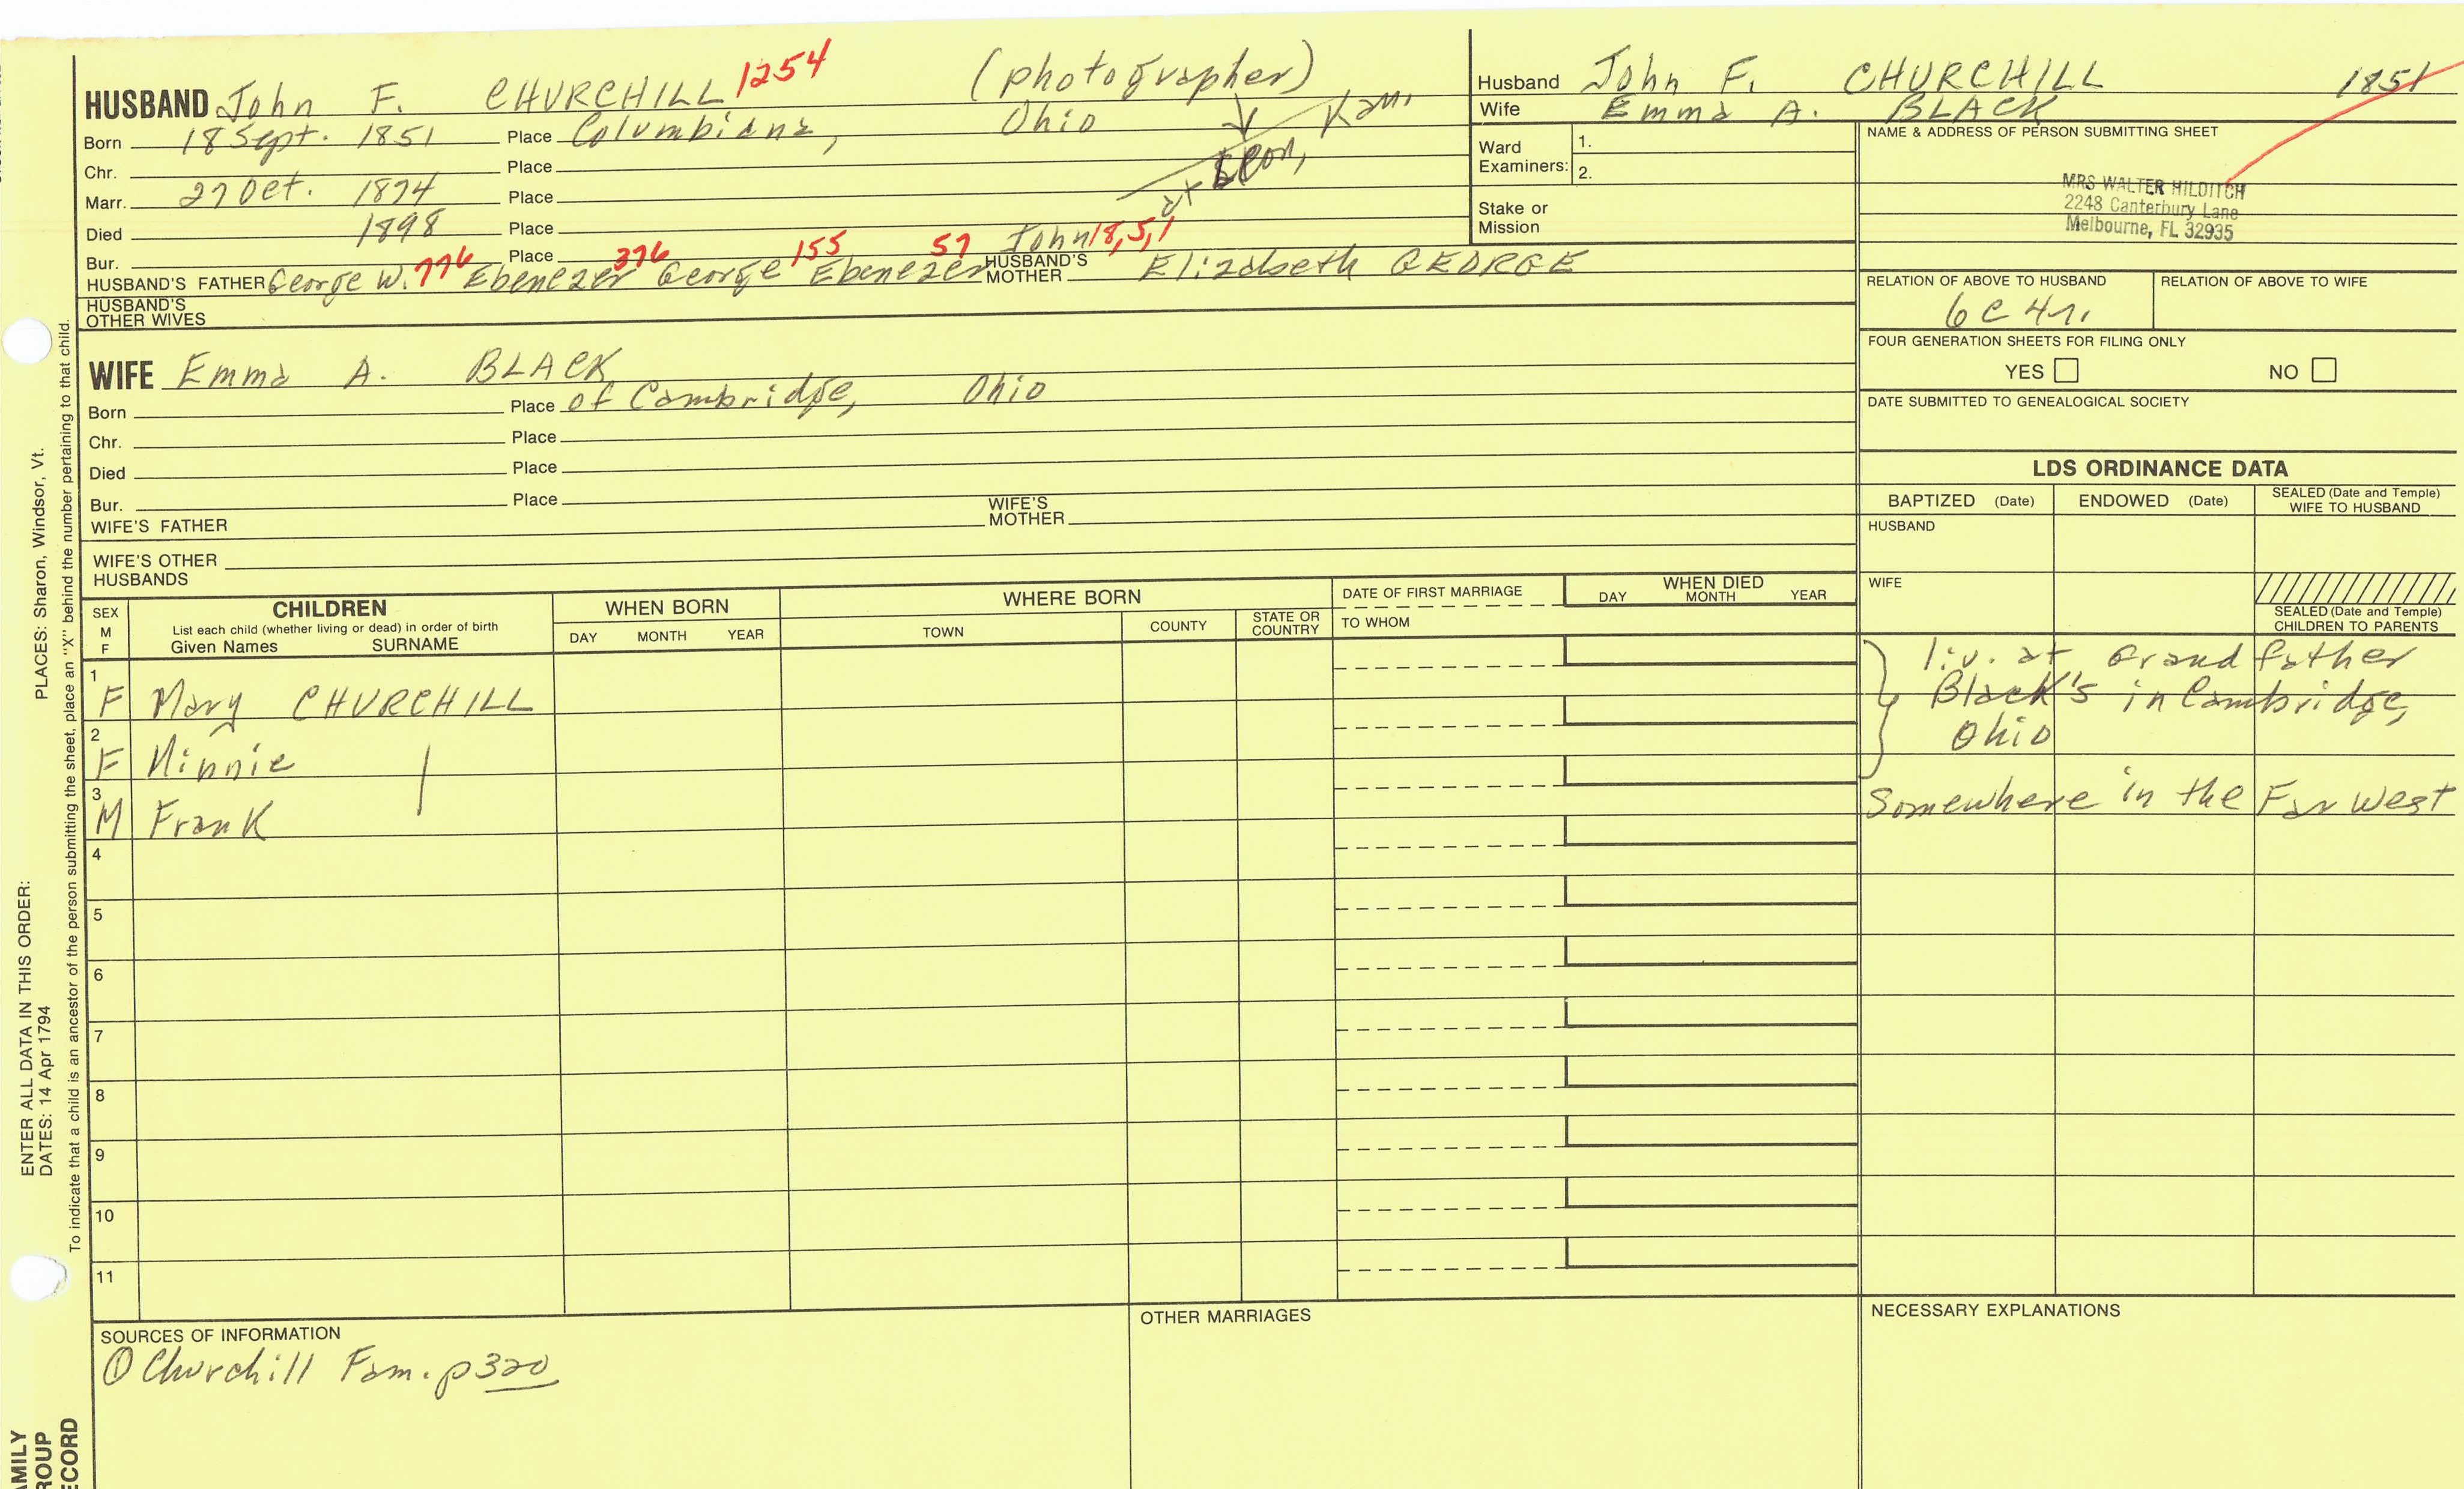 HUSBAND John F. CHURCHILL 1254 (photographer)
Born 18 Sept. 1851 Place Columbiana, Ohio
at Leon, Kan.
Chr. Place
Marr. 27 Oct. 1874 Place
Died 1898 Place
Bur. Place
HUSBAND'S FATHER George W. 776 Ebenezer 376 George 155 Ebenezer 57 John 18, 5, 1 HUSBAND'S MOTHER Elizabeth GEORGE
HUSBAND'S OTHER WIVES
WIFE Emma A. BLACK
Born Place of Cambridge, Ohio
Chr. Place
Died Place
Bur. Place
WIFE'S FATHER WIFE'S MOTHER
WIFE'S OTHER HUSBANDS
Husband John F. CHURCHILL 1851
Wife Emma A. BLACK
Ward Examiners: 1. 2.
Stake or Mission
NAME & ADDRESS OF PERSON SUBMITTING SHEET
MRS WALTER HILDITCH
2248 Canterbury Lane
Melbourne, FL 32935
RELATION OF ABOVE TO HUSBAND RELATION OF ABOVE TO WIFE
6C4r.
FOUR GENERATION SHEETS FOR FILING ONLY
YES NO
DATE SUBMITTED TO GENEALOGICAL SOCIETY
LDS ORDINANCE DATA
BAPTIZED (Date) ENDOWED (Date) SEALED (Date and Temple) WIFE TO HUSBAND
HUSBAND
WIFE
SEALED (Date and Temple) CHILDREN TO PARENTS
SEX M F
CHILDREN
List each child (whether living or dead) in order of birth
Given Names SURNAME
WHEN BORN
DAY MONTH YEAR
WHERE BORN
TOWN COUNTY STATE OR COUNTRY
DATE OF FIRST MARRIAGE
TO WHOM
WHEN DIED
DAY MONTH YEAR
1 F Mary CHURCHILL
2 F Minnie
3 M Frank
liv. at Grandfather
Black's in Cambridge,
Ohio
Somewhere in the Far West
4
5
6
7
8
9
10
11
SOURCES OF INFORMATION
① Churchill Fam. p320
OTHER MARRIAGES
NECESSARY EXPLANATIONS
ENTER ALL DATA IN THIS ORDER:
DATES: 14 Apr 1794 PLACES: Sharon, Windsor, Vt.
To indicate that a child is an ancestor of the person submitting the sheet, place an "X" behind the number pertaining to that child.
AMILY
ROUP
ECORD